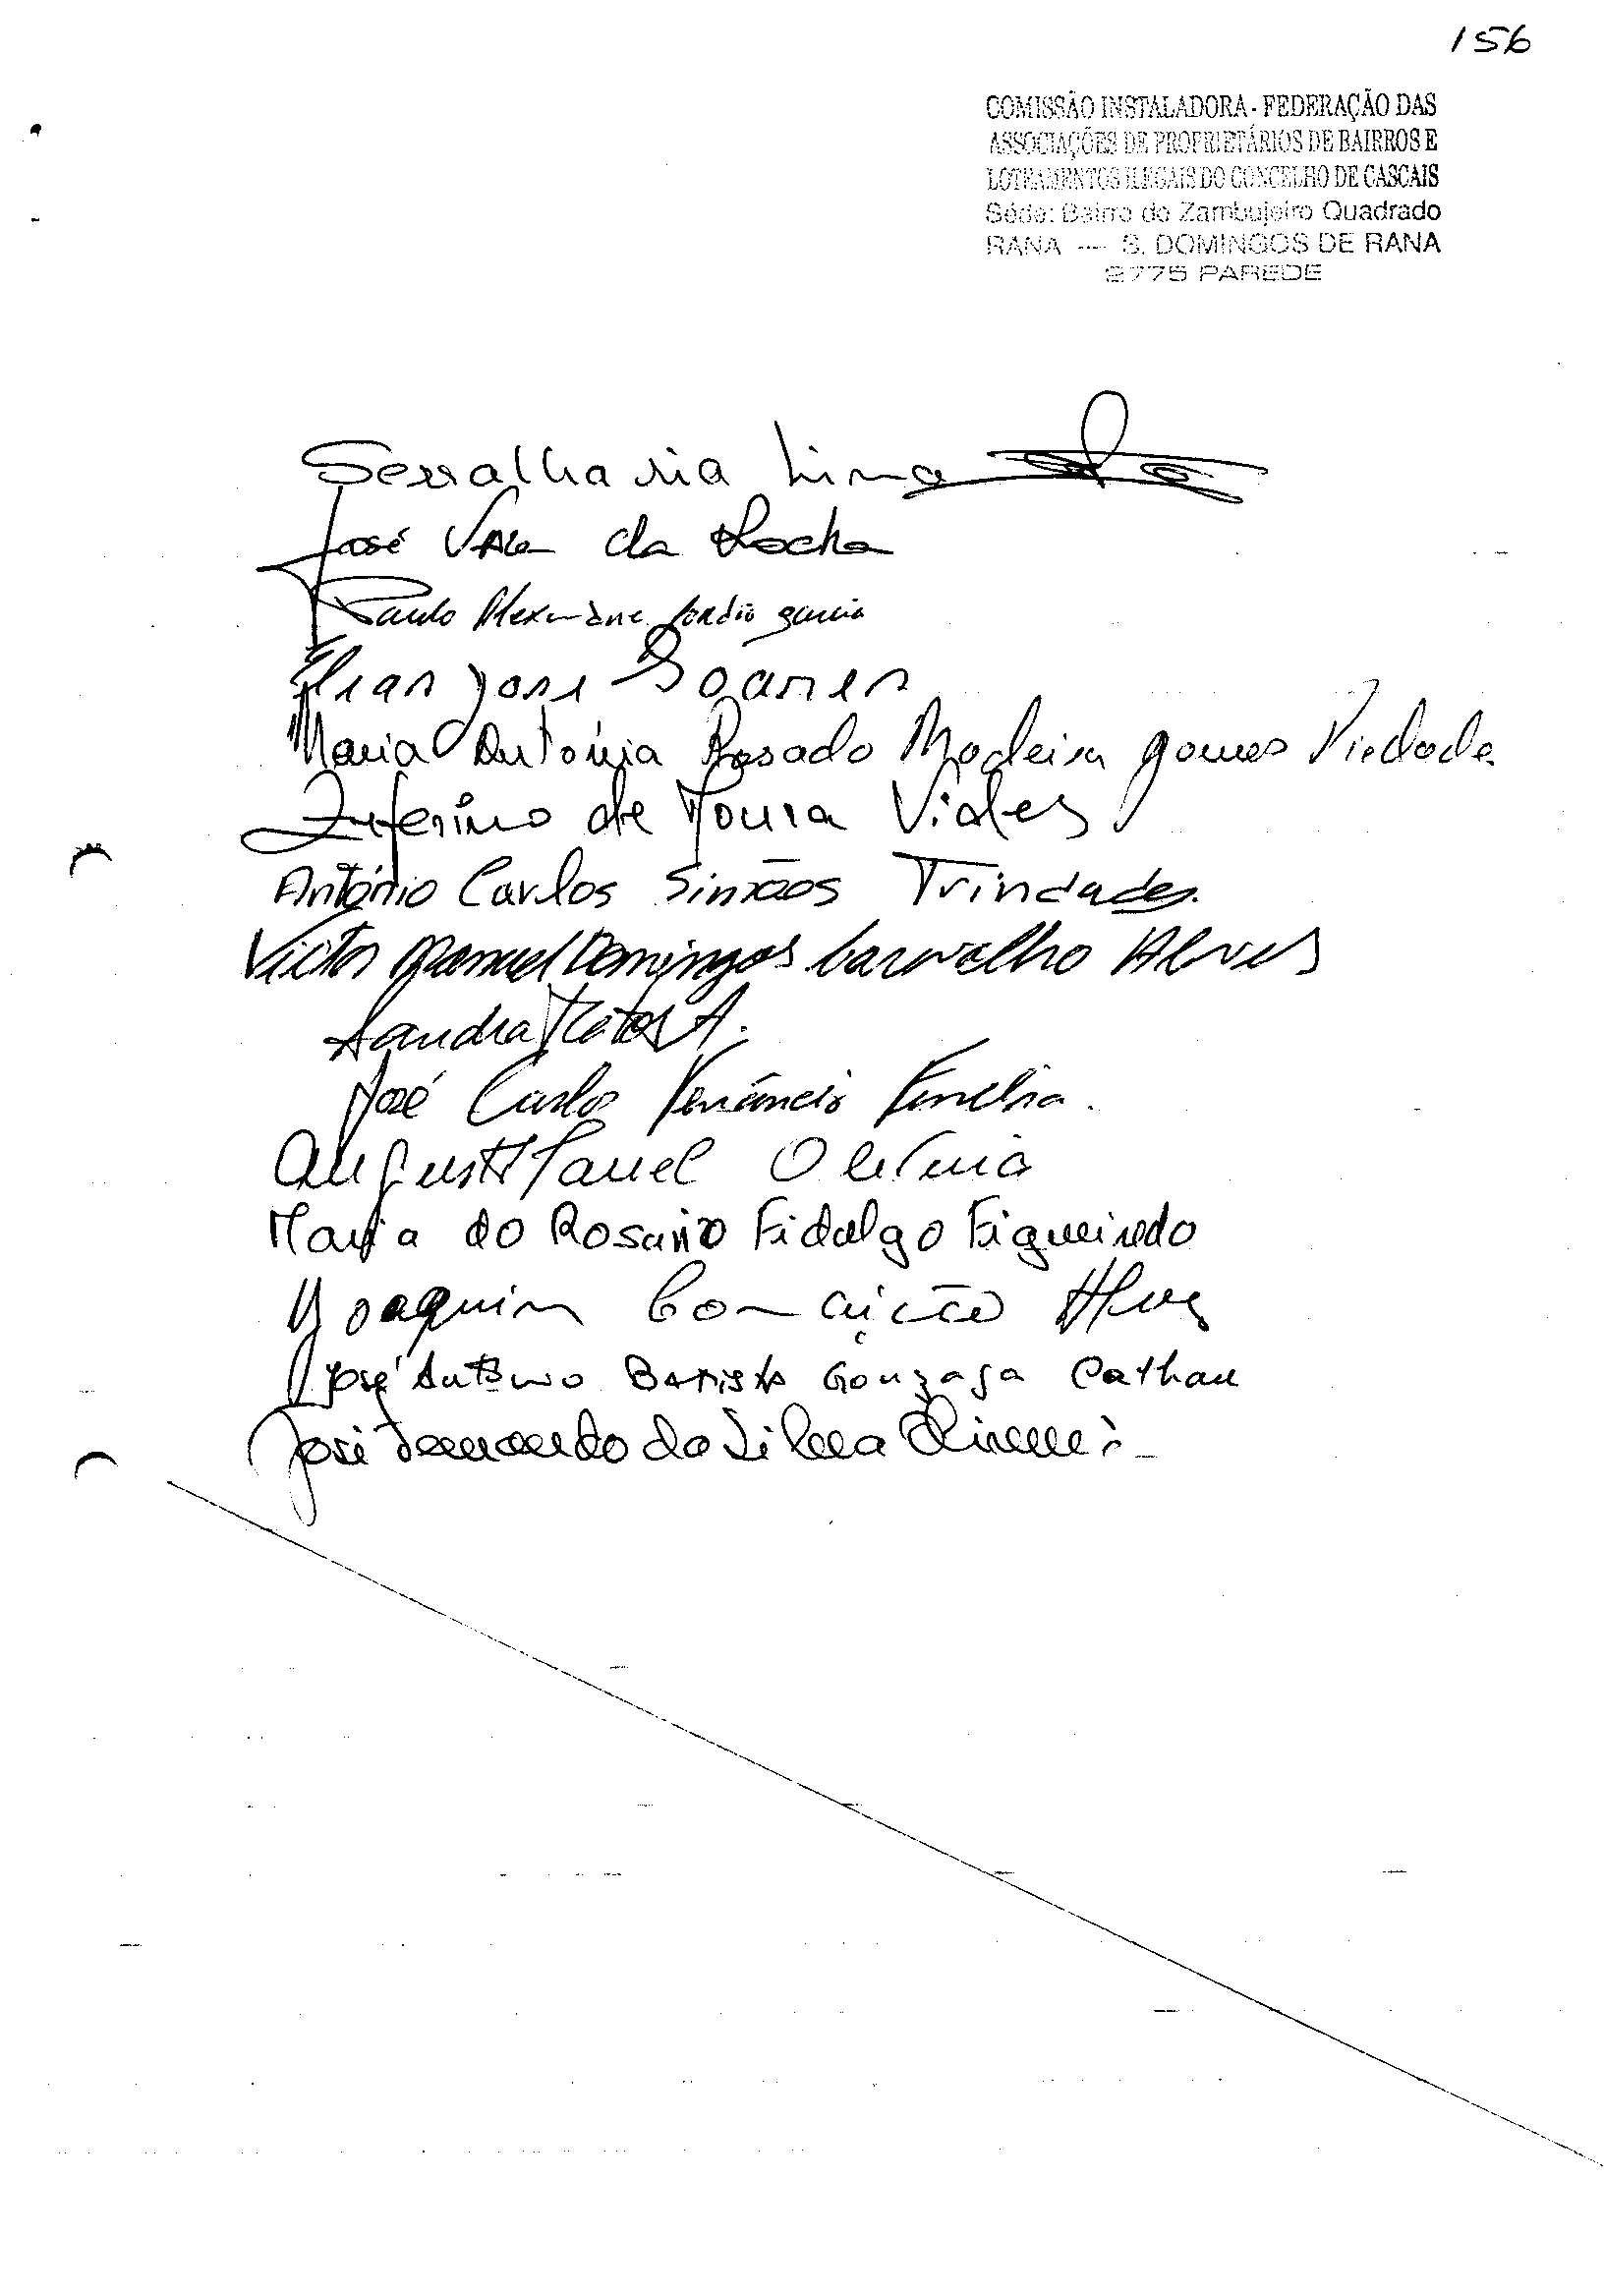 156
COMISSÃO INSTALADORA - FEDERAÇÃO DAS
ASSOCIAÇÕES DE PROPRIETÁRIOS DE BAIRROS E
LOTEAMENTOS ILEGAIS DO CONCELHO DE CASCAIS
Séde: Bairro do Zambujeiro Quadrado
RANA --- S. DOMINGOS DE RANA
2775 PAREDE
Serralharia Lima
José Vale da Rocha
Paulo Alexandre garcia
Elias José Soares
Maria Antónia Rosado Madeira Gomes Piedade
Zeferino de Moura
António Carlos Simãos Trindade
Victor Manuel Domingos Carvalho Alves
Sandra Matos A.
José Carlos Venâncio
Augusto Manuel Oliveira
Maria do Rosario Fidalgo Figueiredo
Joaquim Conceição Alves
José António Batista Gonzaga
José Fernando da Silva